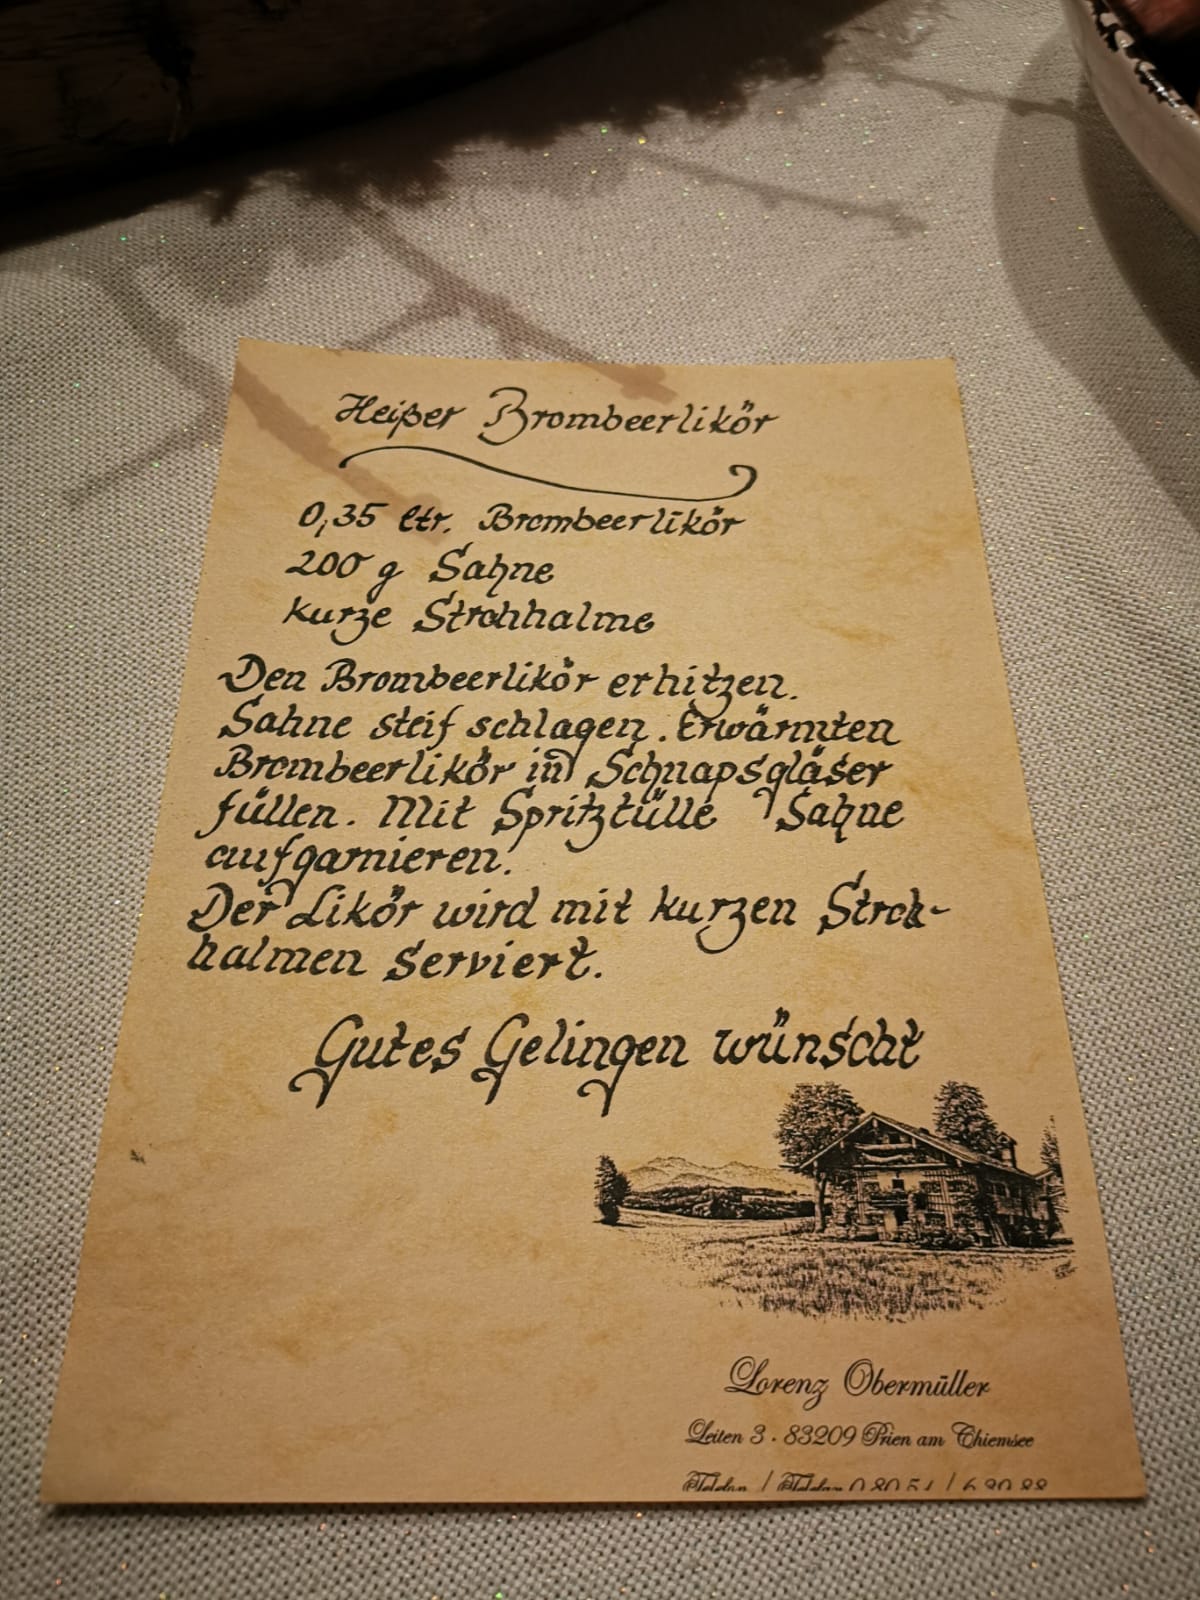 Heißer Brombeerlikör
0,35 ltr. Brombeerlikör
200 g Sahne
kurze Strohhalme
Den Brombeerlikör erhitzen.
Sahne steif schlagen. Erwärmten
Brombeerlikör in Schnapsgläser
füllen. Mit Spritztülle Sahne
aufgarnieren.
Der Likör wird mit kurzen Stroh-
halmen serviert.
Gutes Gelingen wünscht
Lorenz Obermüller
Leiten 3 · 83209 Prien am Chiemsee